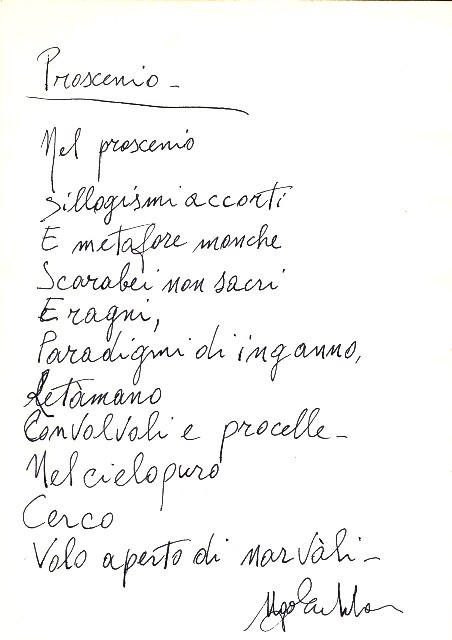 Proscenio -
Nel proscenio
Sillogismi accorti
E metafore monche
Scarabei non sacri
E ragni,
Paradigmi di inganno,
Letàmano
Convolvoli e procelle -
Nel cielo puro
Cerco
Volo aperto di narvàli -